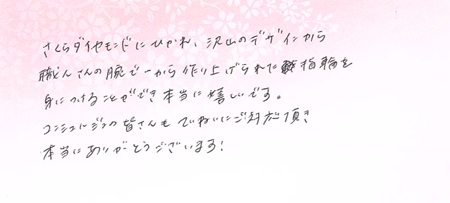 さくらダイヤモンドにひかれ、沢山のデザインから
職人さんの腕で一から作り上げられた指輪を
身につけることができ本当に嬉しいです。
コンシェルジュの皆さんもていねいにご対応頂き
本当にありがとうございます!